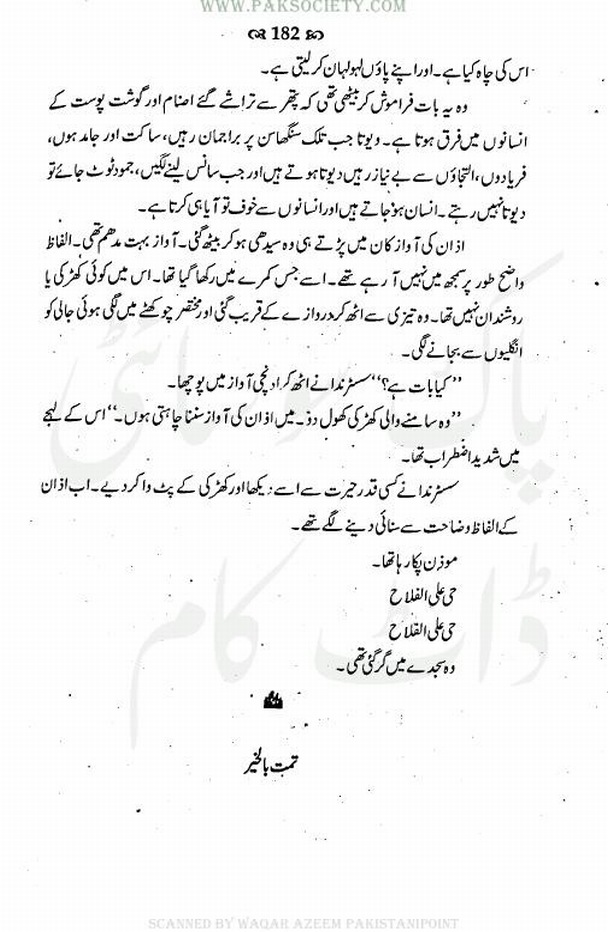 WWW.PAKSOCIETY.COM
182
اس کی چاہ کیا ہے۔ اور اپنے پاؤں لہولہان کر لیتی ہے۔
وہ یہ بات فراموش کر بیٹھی تھی کہ پتھر سے تراشے گئے اصنام اور گوشت پوست کے
انسانوں میں فرق ہوتا ہے۔ دیوتا جب تلک سنگھاسن پر براجمان رہیں، ساکت اور جامد ہوں،
فریادوں، التجاؤں سے بے نیاز رہیں دیوتا ہوتے ہیں اور جب سانس لینے لگیں، جمود ٹوٹ جائے تو
دیوتا نہیں رہتے۔ انسان ہو جاتے ہیں اور انسانوں سے خوف تو آیا ہی کرتا ہے۔
اذان کی آواز کان میں پڑتے ہی وہ سیدھی ہو کر بیٹھ گئی۔ آواز بہت مدھم تھی۔ الفاظ
واضح طور پر سمجھ میں نہیں آ رہے تھے۔ اسے جس کمرے میں رکھا گیا تھا۔ اس میں کوئی کھڑکی یا
روشندان نہیں تھا۔ وہ تیزی سے اٹھ کر دروازے کے قریب گئی اور مختصر چوکھٹے میں لگی ہوئی جالی کو
انگلیوں سے بجانے لگی۔
’’کیا بات ہے؟‘‘ سسٹر ندا نے اٹھ کر اونچی آواز میں پوچھا۔
’’وہ سامنے والی کھڑکی کھول دو۔ میں اذان کی آواز سننا چاہتی ہوں۔‘‘ اس کے لہجے
میں شدید اضطراب تھا۔
سسٹر ندا نے کسی قدر حیرت سے اسے دیکھا اور کھڑکی کے پٹ وا کر دیے۔ اب اذان
کے الفاظ وضاحت سے سنائی دینے لگے تھے۔
موذن پکار رہا تھا۔
حی علی الفلاح
حی علی الفلاح
وہ سجدے میں گر گئی تھی۔
تمت بالخیر
پاک سوسائٹی
ڈاٹ کام
SCANNED BY WAQAR AZEEM PAKISTANIPOINT